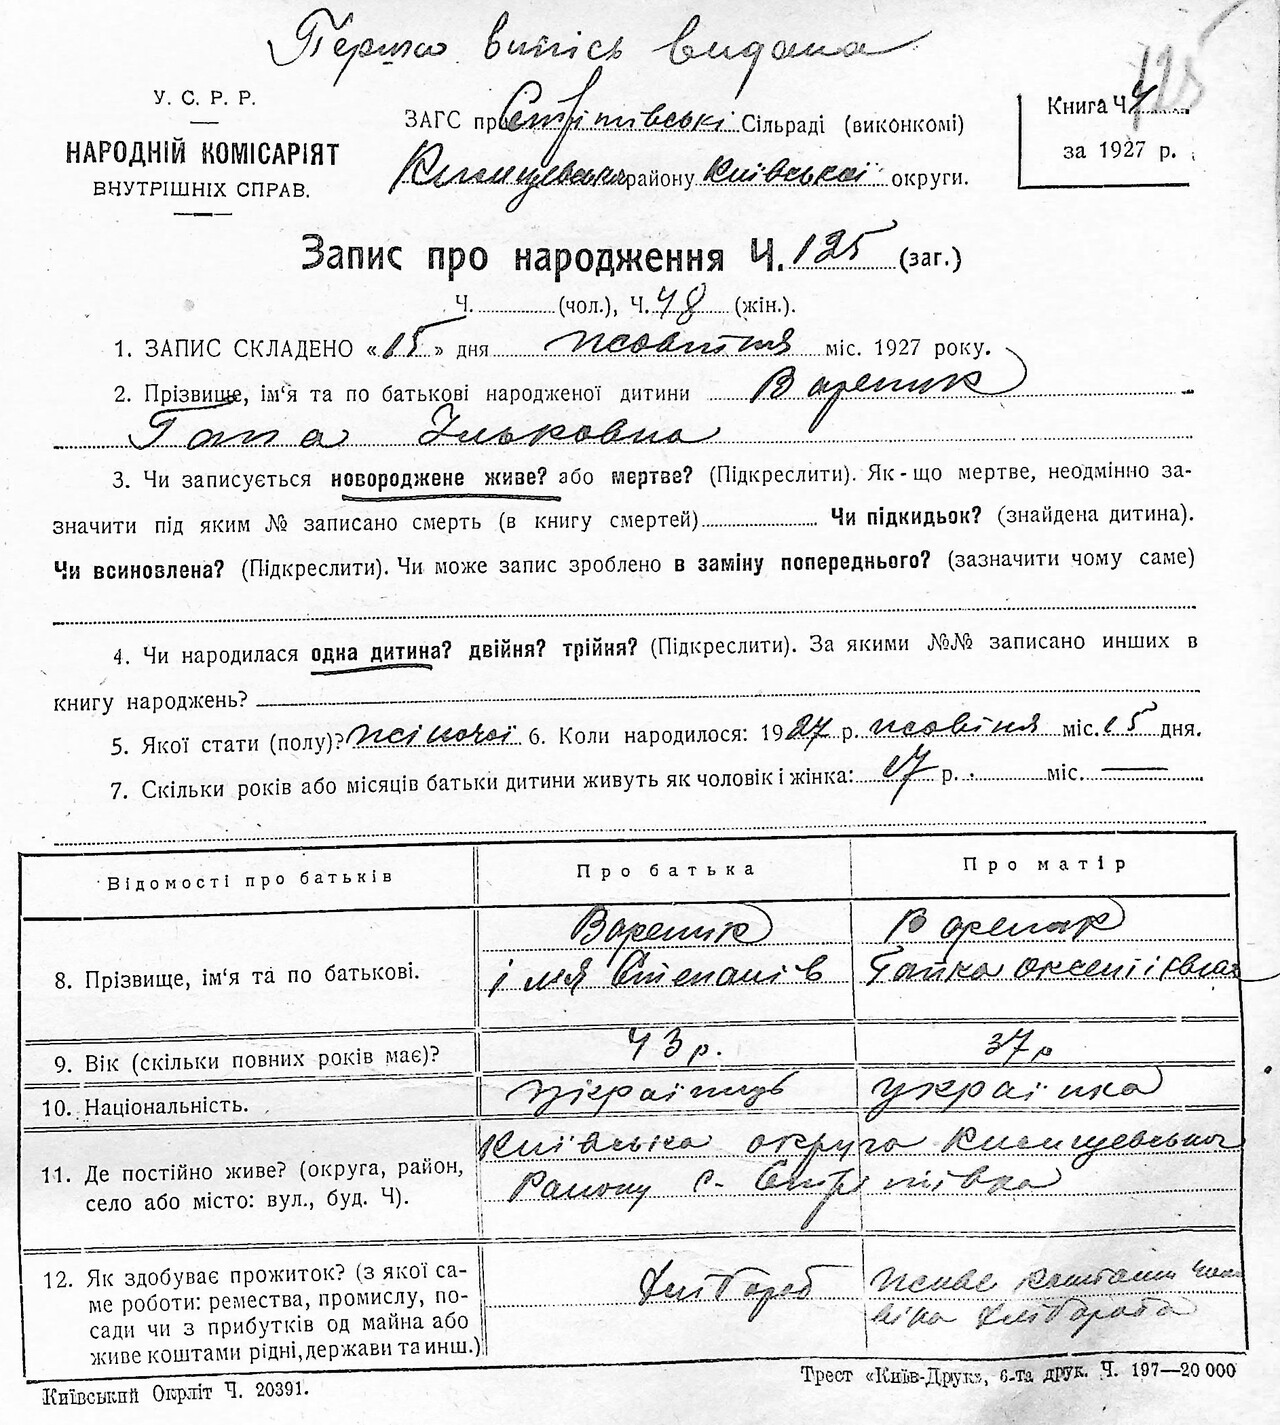 Перша випись видана
125
У. С. Р. Р.
НАРОДНІЙ КОМІСАРІЯТ
ВНУТРІШНІХ СПРАВ.
ЗАГС при Стрітівські Сільраді (виконкомі)
району Київської округи.
Книга Ч.
за 1927 р.
Запис про народження Ч. 125 (заг.)
Ч. (чол.), Ч. 48 (жін.).
1. ЗАПИС СКЛАДЕНО «15» дня жовтня міс. 1927 року.
2. Прізвище, ім'я та по батькові народженої дитини Вареник
Гапа Ильковна
3. Чи записується новороджене живе? або мертве? (Підкреслити). Як-що мертве, неодмінно за-
значити під яким № записано смерть (в книгу смертей) Чи підкидьок? (знайдена дитина).
Чи всиновлена? (Підкреслити). Чи може запис зроблено в заміну попереднього? (зазначити чому саме)
4. Чи народилася одна дитина? двійня? трійня? (Підкреслити). За якими №№ записано инших в
книгу народжень?
5. Якої стати (полу)? жіночої 6. Коли народилося: 1927 р. жовтня міс. 15 дня.
7. Скільки років або місяців батьки дитини живуть як чоловік і жінка: 17 р. міс. —
Відомості про батьків
Про батька
Про матір
8. Прізвище, ім'я та по батькові.
Вареник
Степанів
Вареник
Гапка
9. Вік (скільки повних років має)?
43 р.
37 р
10. Національність.
українець
українка
11. Де постійно живе? (округа, район,
село або місто: вул., буд. Ч).
Київська округа
Району с. Стрітівка
12. Як здобуває прожиток? (з якої са-
ме роботи: ремества, промислу, по-
сади чи з прибутків од майна або
живе коштами рідні, держави та инш.)
хлібороб
живе коштами чоло
віка хлібороба
Київський Окрліт Ч. 20391.
Трест «Київ-Друк», 6-та друк. Ч. 197—20 000